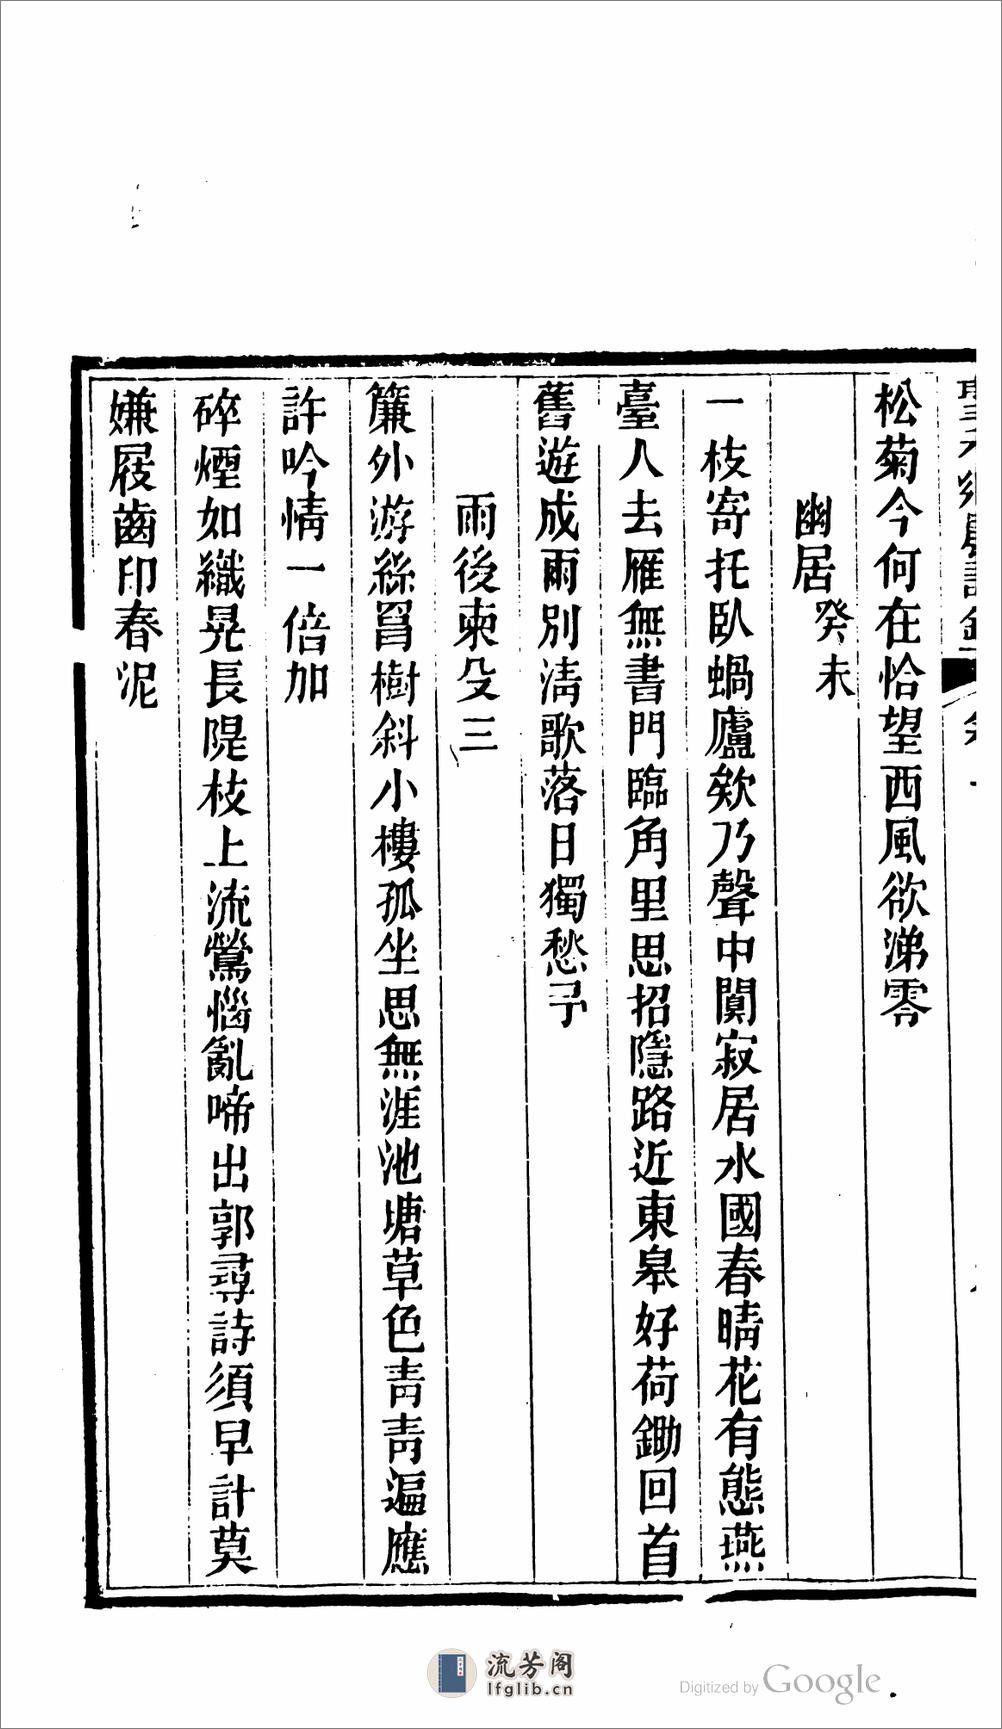 松菊今何在恰望西風欲涕零
幽居癸未
一枝寄托臥蝸廬欸乃聲中闃寂居水國春晴花有態燕
臺人去雁無書門臨角里思招隱路近東皋好荷鋤回首
舊遊成雨別清歌落日獨愁予
雨後柬殳三
簾外游絲罥樹斜小樓孤坐思無涯池塘草色青青遍應
許吟情一倍加
碎煙如織晃長隄枝上流鶯惱亂啼出郭尋詩須早計莫
嫌屐齒印春泥
流芳阁
lfglib.cn
Digitized by Google